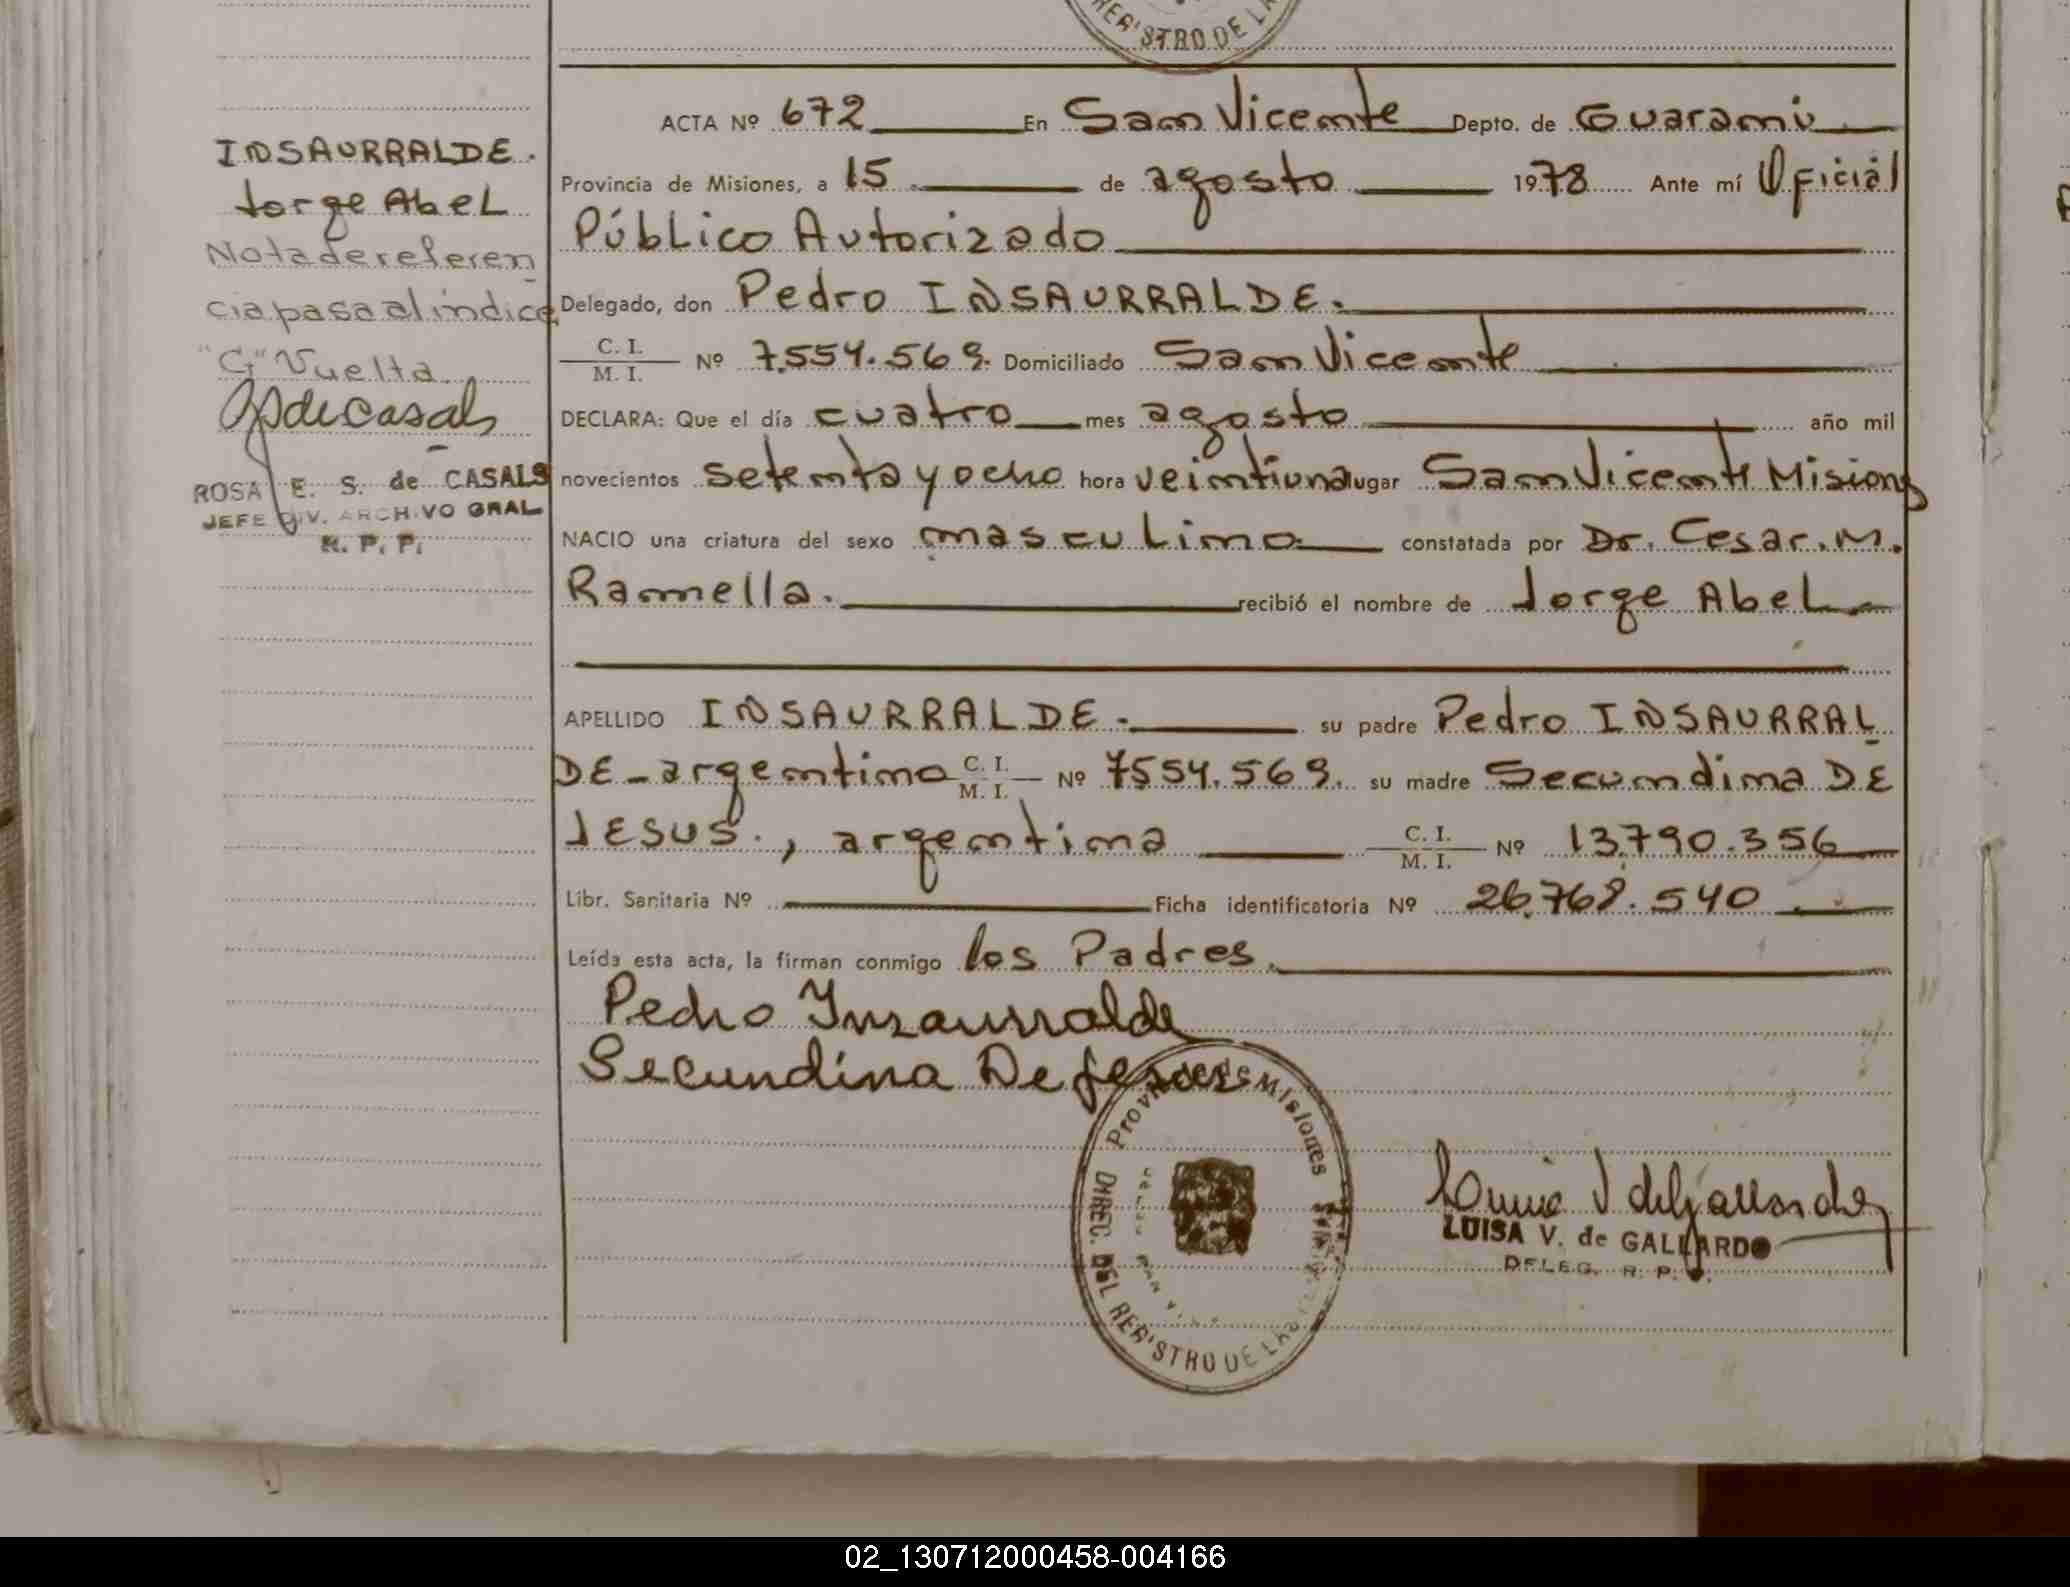 REG'STRO DE LA
ACTA Nº 672 En San Vicente Depto. de Guaraní
Provincia de Misiones, a 15 de agosto 1978 Ante mí Oficial
Público Autorizado
Delegado, don Pedro INSAURRALDE.
C. I. / M. I. Nº 7.554.569. Domiciliado San Vicente
DECLARA: Que el día cuatro mes agosto año mil
novecientos setenta y ocho hora veintiuna lugar San Vicente Misiones
NACIO una criatura del sexo masculino constatada por Dr. Cesar. M.
Ramella. recibió el nombre de Jorge Abel
APELLIDO INSAURRALDE. su padre Pedro INSAURRAL
DE - argentino C. I. / M. I. Nº 7554.569. su madre Secundina DE
JESUS., argentina C. I. / M. I. Nº 13.790.356
Libr. Sanitaria Nº Ficha identificatoria Nº 26.768.540
Leída esta acta, la firman conmigo los Padres.
Pedro Insaurralde
Secundina De Jesus
INSAURRALDE.
Jorge Abel
Nota de referen
cia pasa al indice
"G" Vuelta.
ROSA E. S. de CASALS
JEFE DIV. ARCHIVO GRAL
R. P. P.
Provincia de Misiones
DIREC. DEL REG'STRO DE LAS
LUISA V. de GALLARDO
DELEG. R. P.
02_130712000458-004166